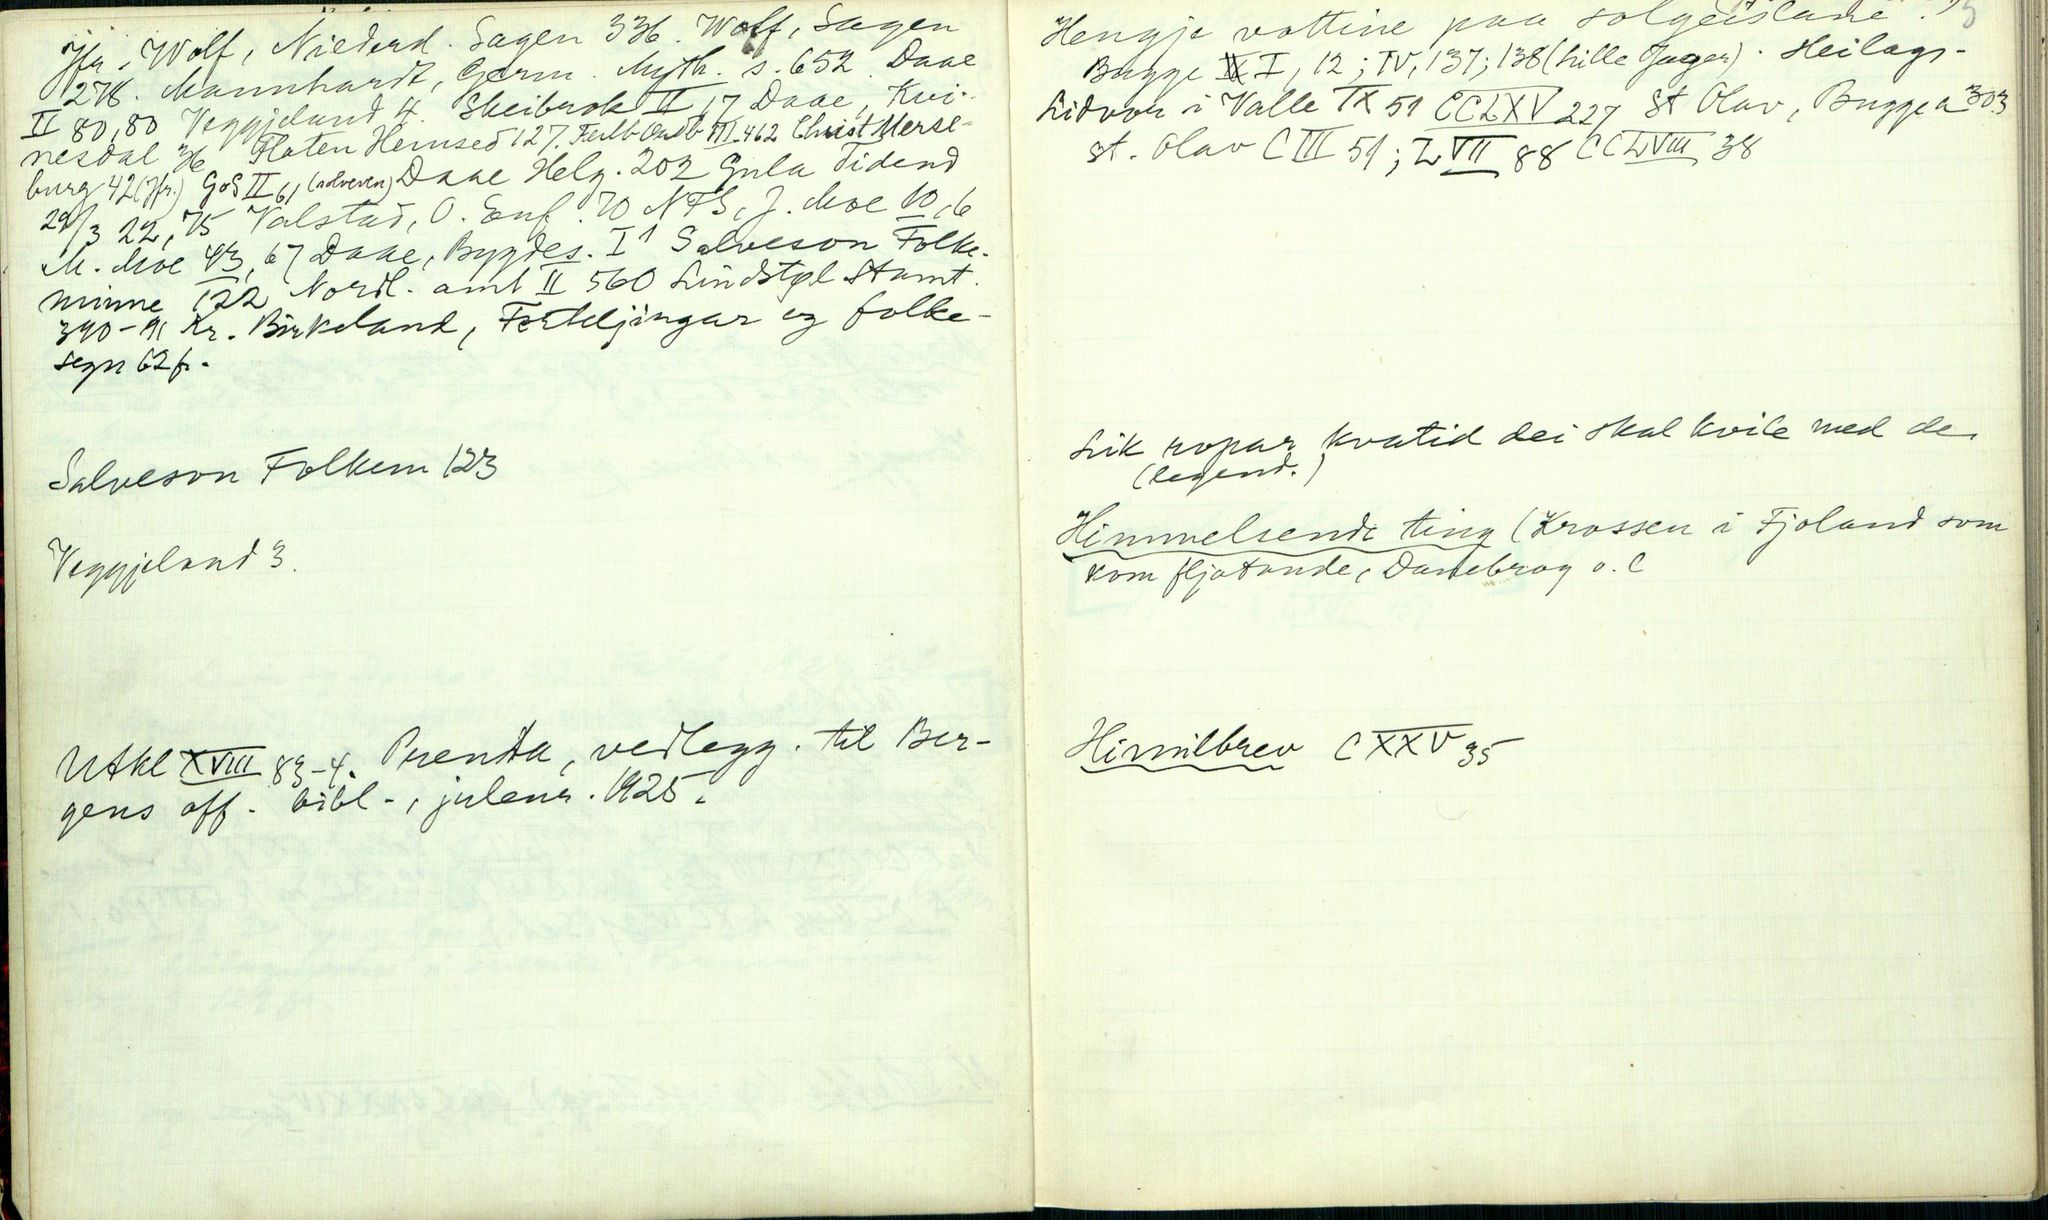 Jfr. Wolf, Niederd. Sagen 336. Wolf, Sagen
278. Mannhardt, Germ. Myth. s. 652. Daae
II 80, 80 Veggjeland 4. Skeibrok II, 17 Daae, Kvi-
nesdal 36 Flaten Hemsed 127. Feilb Ordb III 462 Christ Merse-
burg 42 (Jfr.) GoS II 61 (solveven) Daae Helg. 202 Gula Tidend
29/3 22, 75 Valstad, O. Enf. 70 NFS, J. Moe 10, 6
M. Moe 43, 67 Daae, Bygdes. I 1 Salveson Folke-
minne 122 Nordl. amt II 560 Lindstøl Stamt.
390-91 Kr. Birkeland, Forteljingar og folke-
segn 62 fr.
Salveson Folkem 123
Veggjeland 3.
Utkl XVIII 83-4. Prenta, vedlegg. til Ber-
gens off. bibl., julenr. 1925.
5
Hengje vottine paa solgeislane
Bugge I, 12; IV, 137; 138 (Lille Jager). Heilags-
Lidvor i Valle IX 51 CCLXV 227 St Olav, Bugge a 303
St. Olav CIII 51; LVII 88 CCLVIII 38
Lik ropar kvatid dei skal kvile med de
(legend.)
Himmelsende ting (Krossen i Fjoland som
kom fljotande, Danebrog o. l
Himilbrev CXXV 35